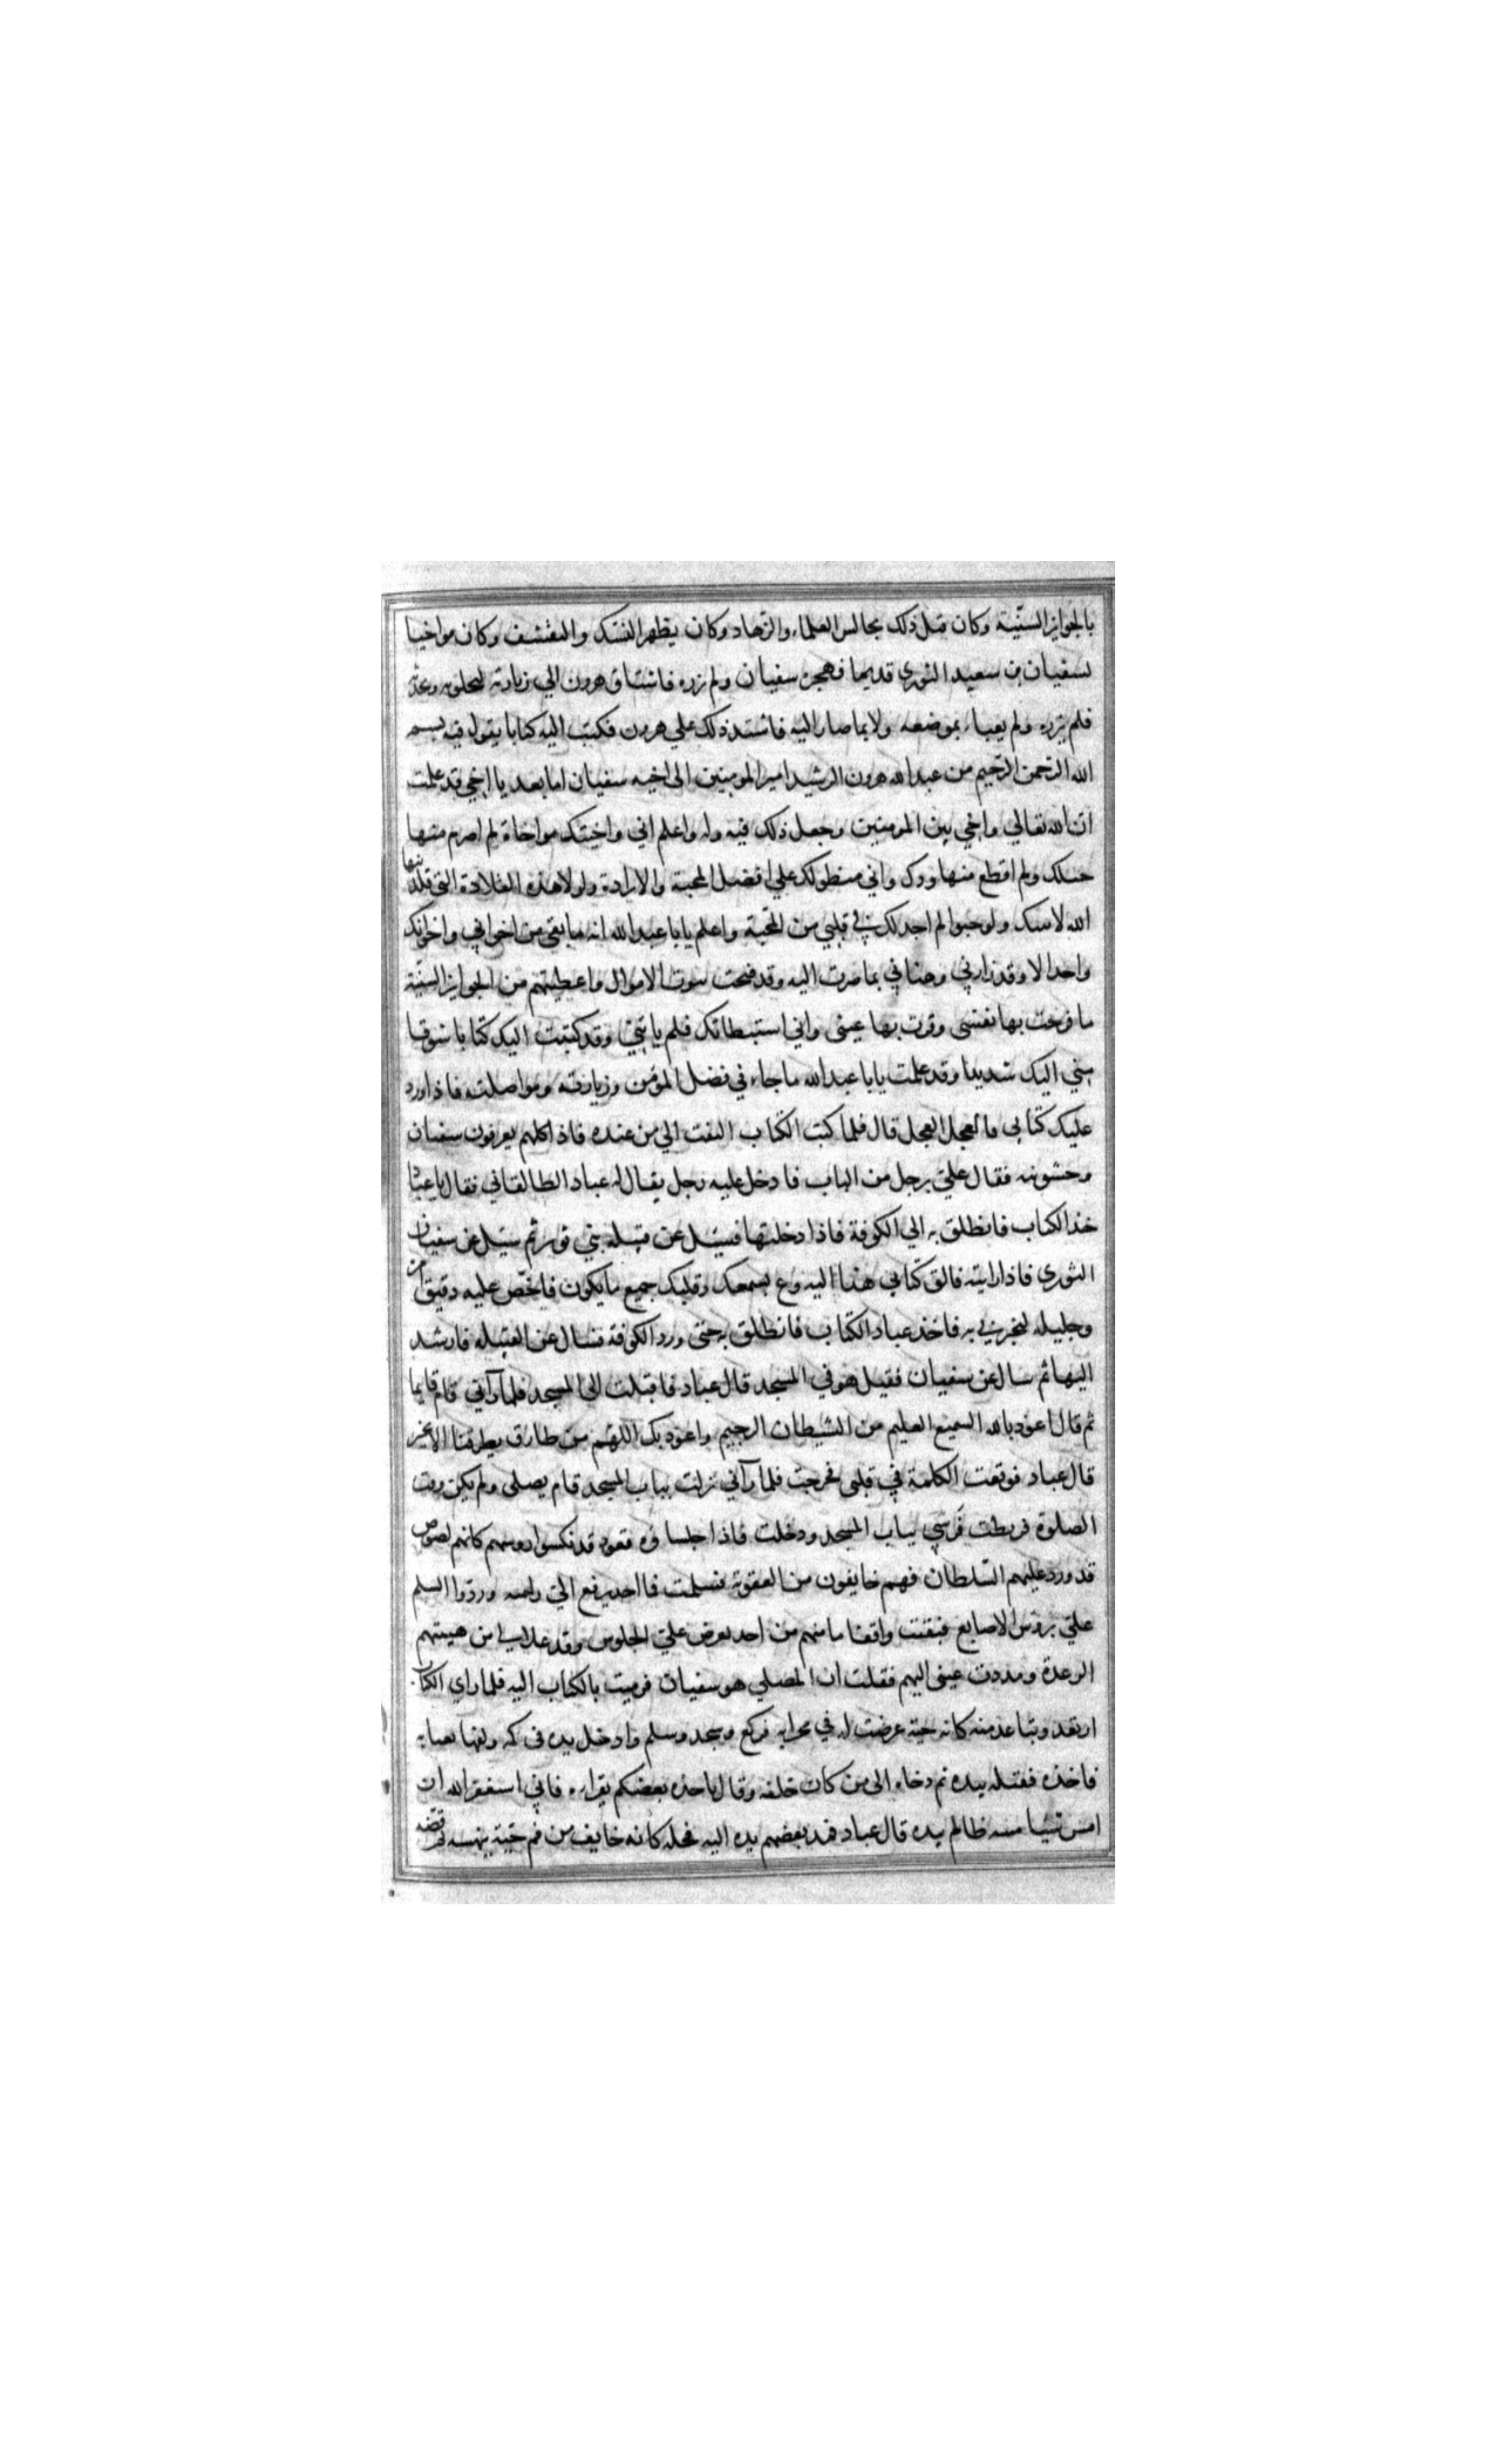 بالجوايز السنّية وكان قبل ذلك يجالس العلماء والزهاد وكان يظهر النسك والتقشف وكان مواخيا
لسفيان بن سعيد الثوري قديما فهجره سفيان ولم يزره فاشتاق هرون الي زيارته ليخلو به ويحدثه
فلم يزره ولم يعباء بموضعه ولا بما صار اليه فاشتد ذلك علي هرون فكتب اليه كتابا يقول فيه بسم
الله الرحمن الرحيم من عبد الله هرون الرشيد امير المومنين الى اخيه سفيان اما بعد يا اخي قد علمت
ان الله تعالي واخي بين المومنين وجعل ذلك فيه وله واعلم اني واخيتك مواخاة لم اصرم منها
حبلك ولم اقطع منها ودك واني منطو لك علي افضل المحبة والارادة ولولا هذه القلادة التي قلدنيها
الله لاتيتك ولو حبوا لم اجد لك في قلبي من المحبة واعلم يابا عبد الله انه ما بقي من اخواني واخوانك
واحد الا وقد زارني وهناني بما صرت اليه وقد فتحت بيوت الاموال واعطيتهم من الجوايز السنية
ما فرحت بها نفسي وقرت بها عيني واني استبطاتك فلم ياتني وقد كتبت اليك كتابا شوقا
مني اليك شديدا وقد علمت يابا عبد الله ما جاء في فضل المؤمن وزيارته ومواصلته فاذا ورد
عليك كتابي فالعجل العجل قال فلما كتب الكتاب التفت الي من عنده فاذا كلهم يعرفون سفيان
وخشونته فقال عليّ برجل من الباب فادخل عليه رجل يقال له عباد الطالقاني فقال يا عباد
خذ الكتاب فانطلق به الي الكوفة فاذا دخلتها فسئل عن قبيله بني ثور ثم سئل عن سفيان
الثوري فاذا رايته فالق كتابي هذا اليه وع بسمعك وقلبك جميع ما يكون فاخص عليه دقيق امره
وجليله لتخبرني به فاخذ عباد الكتاب فانطلق به حتى ورد الكوفة فسال عن القبيله فارشد
اليها ثم سال عن سفيان فقيل هو في المسجد قال عباد فاقبلت الى المسجد فلما رآني قام قايما
ثم قال اعوذ بالله السميع العليم من الشيطان الرجيم واعوذ بك اللهم من طارق يطرقنا الا بخير
قال عباد فوقعت الكلمة في قلبي فخرجت فلما رآني نزلت بباب المسجد قام يصلي ولم يكن وقت
الصلوة فربطت فرسي بباب المسجد ودخلت فاذا جلساؤه قعود قد نكسوا روسهم كانهم لصوص
قد ورد عليهم السّلطان فهم خايفون من العقوبة فسلمت فما احد يرفع اليّ راسه وردوا السلم
عليّ برؤس الاصابع فبقيت واقفا ما منهم من احد يعرض عليّ الجلوس وقد علاني من هيبتهم
الرعدة ومددت عيني اليهم فقلت ان المصلي هو سفيان فرميت بالكتاب اليه فلما راي الكتاب
ارتعد وتباعد منه كانه حية عرضت له في محرابه فركع وسجد وسلم وادخل يده في كمه ولفها بعبايه
فاخذه فقتله بيده ثم دحاه الى من كان خلفه وقال ياخذه بعضكم يقراءه فاني استغفر الله ان
امس شيا مسه ظالم بيده قال عباد فمد بعضهم يده اليه فحله كانه خايف من فم حية ينهسه ثم فضه